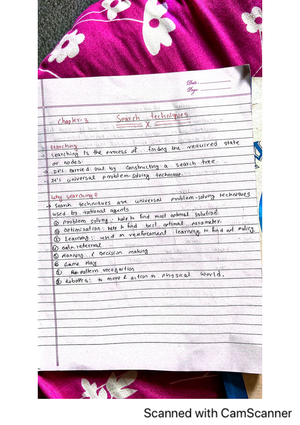 Date:
Page:
Chapter: 3
Search techniques
X
Searching
→ Searching is the process of finding the required state
or nodes.
→ It's carried out by constructing a search tree.
→ It's universal problem-solving technique.
Why searching?
→ Search techniques are universal problem-solving techniques
used by rational agents
① Problem solving: help to find most optimal solution.
② Optimization: help to find best optimal parameter.
③ Learning: used in reinforcement learning to find out policy
④
⑤ Planning & decision making
⑥ Game Play
⑦ Pattern recognition
⑧ Robotics: to move & action in physical world.
Scanned with CamScanner